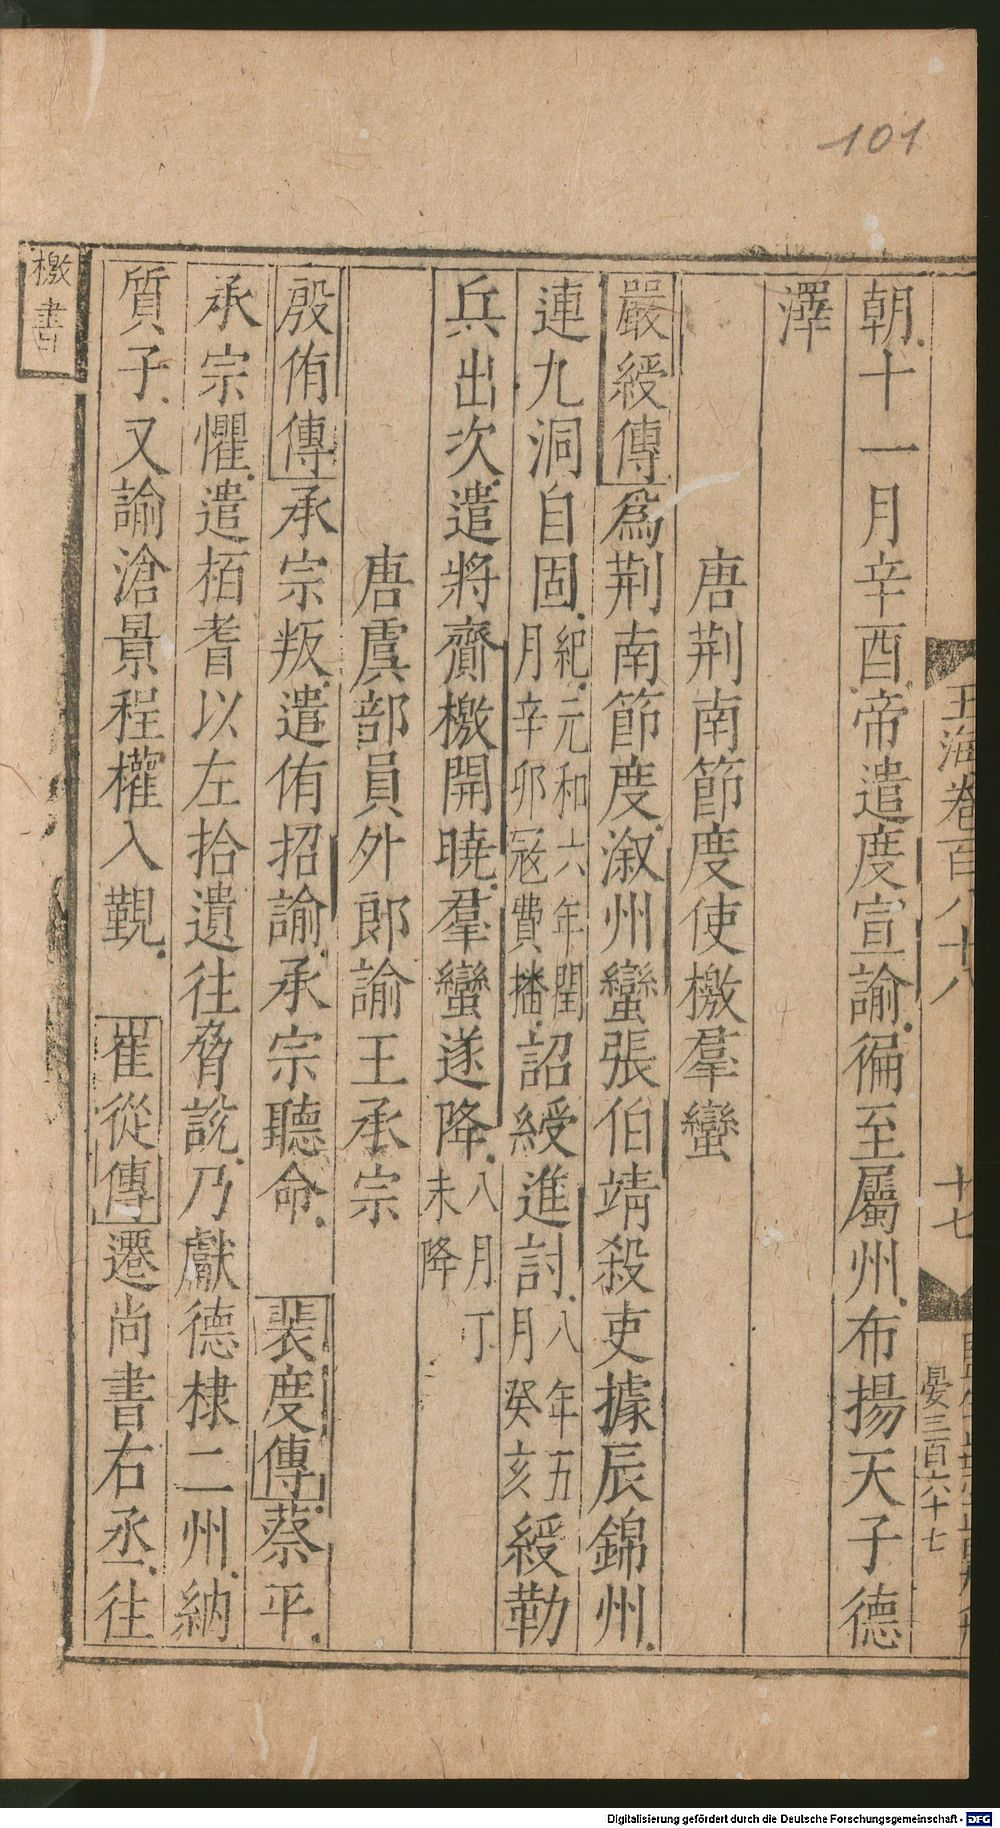 101
玉海卷百八十八
十七
晏三百六十七
朝十一月辛酉帝遣度宣諭徧至屬州布揚天子德
澤
唐荆南節度使檄羣蠻
嚴綬傳爲荆南節度漵州蠻張伯靖殺吏據辰錦州
連九洞自固紀元和六年閏月辛卯寇費播詔綬進討八年五月癸亥綬勒
兵出次遣將齎檄開曉羣蠻遂降八月丁未降
唐虞部員外郎諭王承宗
殷侑傳承宗叛遣侑招諭承宗聽命 裴度傳蔡平
承宗懼遣栢耆以左拾遺往脅說乃獻德棣二州納
質子又諭滄景程權入覲 崔從傳遷尚書右丞往
檄書
Digitalisierung gefördert durch die Deutsche Forschungsgemeinschaft - DFG